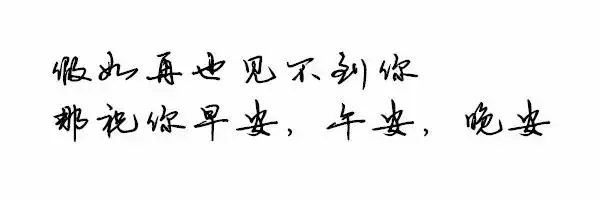 假如再也见不到你
那祝你早安，午安，晚安